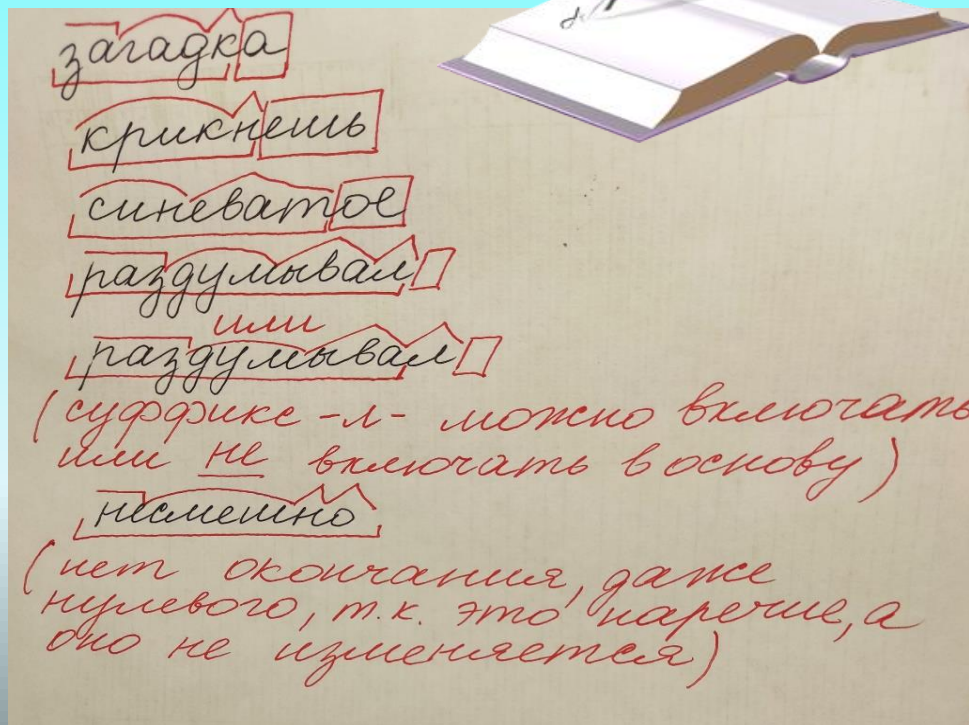 загадка
крикнешь
синеватое
раздумывал
или
раздумывал
(суффикс -л- можно включать
или не включать в основу)
несмешно
(нет окончания, даже
нулевого, т.к. это наречие, а
оно не изменяется)